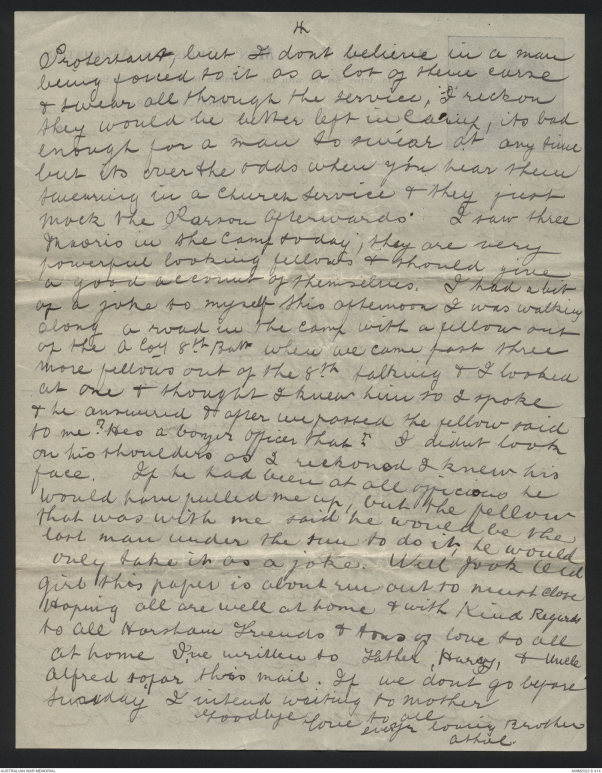 4
Protestant, but I dont believe in a man
being forced to it as a lot of them curse
& swear all through the service, I reckon
they would be better left in camp, its bad
enough for a man to swear at any time
but its over the odds when you hear them
swearing in a Church service & they just
mock the Parson afterwards. I saw three
Maoris in the Camp today, they are very
powerful looking fellows & should give
a good account of themselves. I had a bit
of a joke to myself this afternoon I was walking
along a road in the camp with a fellow out
of the A Coy 8th Batt when we came past three
more fellows out of the 8th talking & I looked
at one & thought I knew him so I spoke
& he answered & after we passed the fellow said
to me "Hes a bonzer officer that". I didnt look
on his shoulders as I reckoned I knew his
face. If he had been at all officious he
would have pulled me up, but the fellow
that was with me said he would be the
last man under the sun to do it, he would
only take it as a joke. Well Took old
girl this paper is about run out so must close
Hoping all are well at home & with Kind Regards
to all Horsham Friends & tons of love to all
at home I've written to Father, Harry, & Uncle
Alfred so far this mail. If we dont go before
Tuesday I intend writing to mother
Goodbye love to all
ever loving Brother